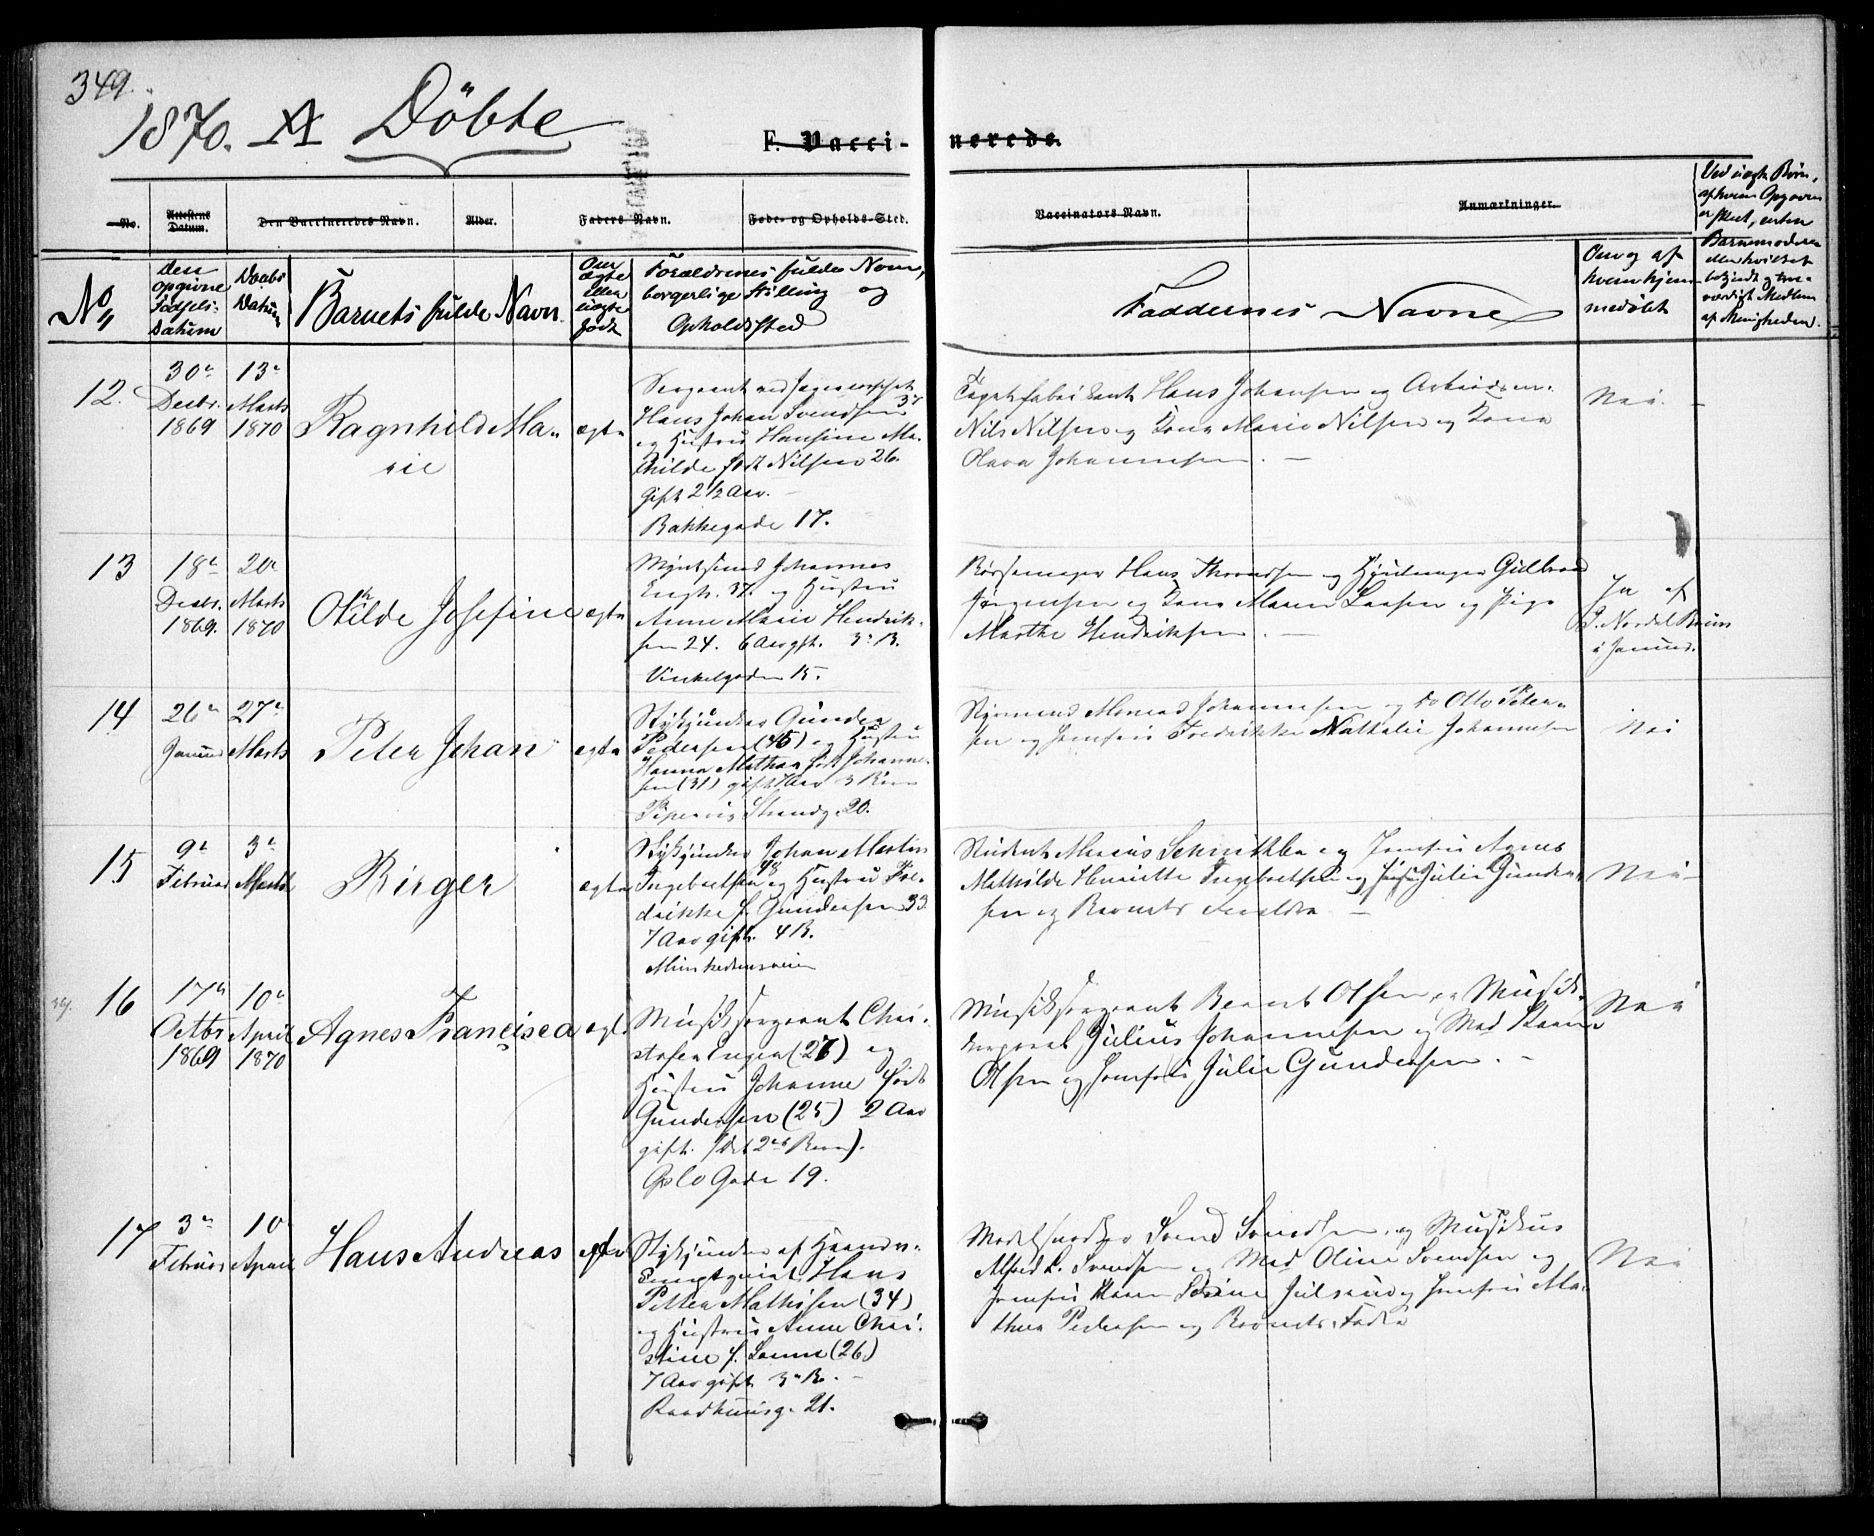 349.
1870. A Döbte
F. Vacci- nerede.
No.
Attestens Datum.
Den Vaccineredes Navn.
Alder.
Faders Navn.
Føde- og Opholds-Sted.
Vaccinators Navn.
Anmærkninger.
No
den opgivne Fødsels-Datum
Daabs Datum
Barnets fulde Navn
Om ægte eller uægte født
Forældrenes fulde Navn,
borgerlige Stilling og
Opholdssted
Faddernes Navne
Om og af
hvem hjem
medöbt
Ved uægte Børn,
af hvem Opgaven
er skeet, enten
Barnemoderen
eller hvilket
bekjendt og tro-
værdigt Medlem
af Menigheden.
12.
30te Decbr. 1869
13de Marts 1870
Ragnhild Ma-
rie
ægte
Sergeant ved Jægercorpset
Hans Johan Svendsen 37
og Hustru Hansine Ma-
thilde født Nilsen 26.
Gift 2 1/2 Aar.
Bakkegade 17.
Hans Johansen og
Nils Nilsen og Kona Marie Nilsen og Kona
Olava Johannesen. —
Nei. —
13
18de Decbr. 1869.
20de Marts 1870
Othilde Josefine
ægte
Johannes
Engh. 37. og Hustru
Anne Marie Hendrik-
sen 24. 6 Aar gft. 3de B.
Vinkelgaden 15.
Børsemager Hans Thorendsen og Hjulmager Gulbrand
Jørgensen og Kona Maren Larsen og Pige
Marthe Hendriksen. —
Ja af
J. Nordal Brun
i Januar.
14
26de Januar
27de Marts
Peter Johan
ægte
Stykjunker Gunder
Pedersen (45) og Hustru
Hanna Mathea født Johanne-
sen (31) gift Aar 3 Børn
Pipervig Strandg. 20.
Styrmand Johannesen og do Otto Peter-
sen og Jomfru Fredrikke Nathalie Johannesen
Nei
15
9de Februar
3de
Birger
ægte
Stykjunker Johan Martin
Ingebretsen 48 og Hustru Fre-
drikke f. Gundersen 33.
7 Aar gift. 4 B.
Munkedamsveien
Student Marius og Jomfru Agnes
Mathilde Henriette Ingebretsen og Jomfru Julie Gunder-
sen og Barnets Forældre —
Nei
16
17de Octbr 1869
10de April 1870
Agnes Francisca
ægte
Musiksergeant Chri-
stofer Engen (27) og
Hustru Johanne født
Gundersen (25) 2 Aar
gift. (Det 2det Barn).
Oslo Gade 19.
Musiksergeant Bernt Olsen og Musik-
Julius Johannesen og Mad Karen
Olsen og Jomfru Julie Gundersen. —
Nei
17
3de Februar
10de April
Hans Andreas
ægte
Stykjunker af
Hans
Petter Mathisen (34)
og Hustru Anne Chri-
stine f. (26)
7 Aar gift 3de B. —
Raadhuusg. 21.
Svend Svendsen, og Musikus
Alfred L. Svendsen og Mad Oline Svendsen og
Jomfru og Jomfru Ma-
thea Pedersen og Barnets Fader
Nei